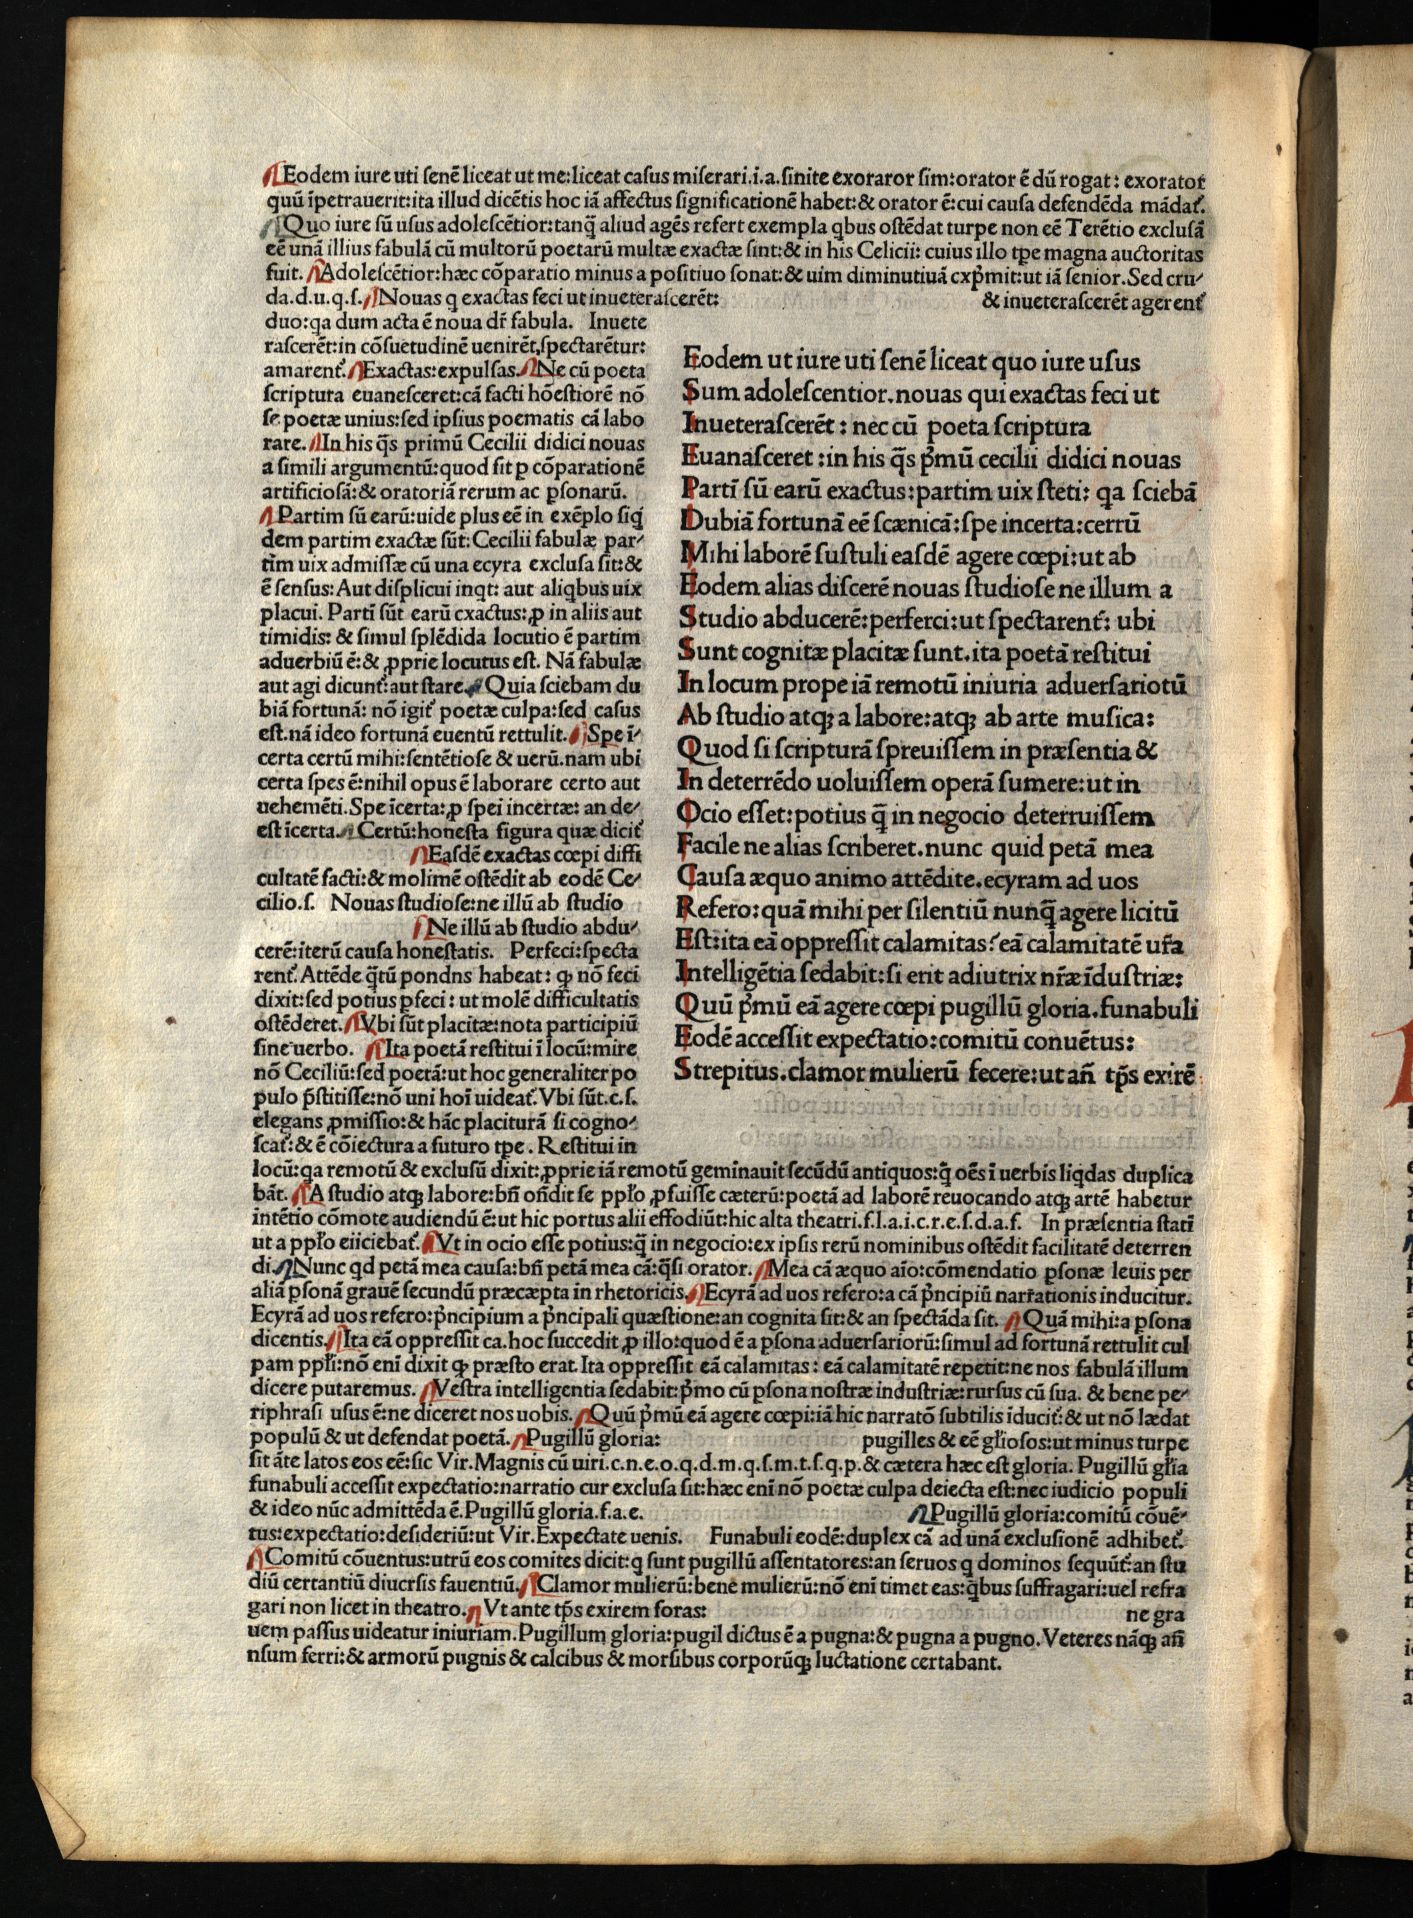 Eodem iure uti ſenē liceat ut me:liceat caſus miſerari.i.a.ſinite exoraror ſim:orator ē dū rogat: exorator
quū īpetrauerit:ita illud dicētis hoc iā affectus ſignificationē habet:& orator ē:cui cauſa defendēda mādat᷑.
Quo iure ſū uſus adoleſcētior:tanq̄ aliud agēs refert exempla qbus oſtēdat turpe non eē Terētio excluſā
eē unā illius fabulā cū multorū poetarū multæ exactæ ſint:& in his Celicii: cuius illo tp̄e magna auctoritas
fuit. Adoleſcētior:hæc cōparatio minus a poſitiuo ſonat:& uim diminutiuā cxp̄mit:ut iā ſenior.Sed cru-
da.d.u.q.ſ. Nouas q exactas feci ut inueteraſcerēt: & inueteraſcerēt agerent᷑
duo:qa dum acta ē noua dr̄ fabula. Inuete
raſcerēt:in cōſuetudinē uenirēt,ſpectarētur:
amarent᷑. Exactas:expulſas. Ne cū poeta
ſcriptura euaneſceret:cā facti hōeſtiorē nō
ſe poetæ unius:ſed ipſius poematis cā labo
rare. In his q̄s primū Cecilii didici nouas
a ſimili argumentū:quod ſit ꝑ cōparationē
artificioſā:& oratoriā rerum ac ꝑſonarū.
Partim ſū earū:uide plus eē in exēplo ſiq
dem partim exactæ ſūt:Cecilii fabulæ par-
tim uix admiſſæ cū una ecyra excluſa ſit:&
ē ſenſus:Aut diſplicui inqt: aut aliqbus uix
placui. Partī ſūt earū cxactus:ꝓ in aliis aut
timidis: & ſimul ſplēdida locutio ē partim
aduerbiū ē:& ꝓprie locutus eſt. Nā fabulæ
aut agi dicunt᷑:aut ſtare. Quia ſciebam du
biā fortunā: nō igit᷑ poetæ culpa:ſed caſus
eſt.nā ideo fortunā euentū rettulit. Spe ī-
certa certū mihi:ſentētioſe & uerū.nam ubi
certa ſpes ē:nihil opus ē laborare certo aut
uehemēti.Spe īcerta:ꝓ ſpei incertæ: an de-
eſt īcerta. Certū:honeſta figura quæ dicit᷑
Eaſdē exactas cœpi diffi
cultatē facti:& molimē oſtēdit ab eodē Ce-
cilio.ſ. Nouas ſtudioſe:ne illū ab ſtudio
Ne illū ab ſtudio abdu-
cerē:iterū cauſa honeſtatis. Perfeci:ſpecta
rent᷑.Attēde q̄tū pondns habeat: ꝙ nō feci
dixit:ſed potius ꝑfeci: ut molē difficultatis
oſtēderet. Vbi ſūt placitæ:nota participiū
ſine uerbo. Ita poetā reſtitui ī locū:mire
nō Ceciliū:ſed poetā:ut hoc generaliter po
pulo p̄ſtitiſſe:nō uni hoī uideat᷑.Vbi ſūt.c.ſ.
elegans ꝓmiſſio:& hāc placiturā ſi cogno-
ſcat᷑:& ē cōiectura a futuro tp̄e. Reſtitui in
Eodem ut iure uti ſenē liceat quo iure uſus
Sum adoleſcentior.nouas qui exactas feci ut
Inueteraſcerēt: nec cū poeta ſcriptura
Euanaſceret:in his q̄s p̄mū cecilii didici nouas
Partī ſū earū exactus:partim uix ſteti: qa ſciebā
Dubiā fortunā eē ſcænicā:ſpe incerta:cerrū
Mihi laborē ſuſtuli eaſdē agere cœpi:ut ab
Eodem alias diſcerē nouas ſtudioſe ne illum a
Studio abducerē:perferci:ut ſpectarent᷑: ubi
Sunt cognitæ placitæ ſunt.ita poetā reſtitui
In locum prope iā remotū iniuria aduerſariotū
Ab ſtudio atqꝫ a labore:atqꝫ ab arte muſica:
Quod ſi ſcripturā ſpreuiſſem in præſentia &
In deterrēdo uoluiſſem operā ſumere:ut in
Ocio eſſet:potius q̄ in negocio deterruiſſem
Facile ne alias ſcriberet.nunc quid petā mea
Cauſa æquo animo attēdite.ecyram ad uos
Refero:quā mihi per ſilentiū nunq̄ agere licitū
Eſt:ita eā oppreſſit calamitas:eā calamitatē ur̄a
Intelligētia ſedabit:ſi erit adiutrix nr̄æ īduſtriæ:
Quū p̄mū eā agere cœpi pugillū gloria.funabuli
Eodē acceſſit expectatio:comitū conuētus:
Strepitus.clamor mulierū fecere:ut an̄ tp̄s exirē
locū:qa remotū & excluſū dixit:ꝓprie iā remotū geminauit ſecūdū antiquos:q̄ oēs ī uerbis liqdas duplica
bāt. A ſtudio atqꝫ labore:bn̄ on̄dit ſe pp̄lo ꝓfuiſſe cæterū:poetā ad laborē reuocando atqꝫ artē habetur
intētio cōmote audiendū ē:ut hic portus alii effodiūt:hic alta theatri.f.l.a.i.c.r.e.ſ.d.a.f. In præſentia ſtatī
ut a pp̄lo eiiciebat᷑. Vt in ocio eſſe potius:q̄ in negocio:ex ipſis rerū nominibus oſtēdit facilitatē deterren
di. Nunc qd petā mea cauſa:bn̄ petā mea cā:q̄ſi orator. Mea cā æquo aīo:cōmendatio ꝑſonæ leuis per
aliā ꝑſonā grauē ſecundū præcæpta in rhetoricis. Ecyrā ad uos refero:a cā p̄ncipiū narr̄ationis inducitur.
Ecyrā ad uos refero:p̄ncipium a p̄ncipali quæſtione:an cognita ſit:& an ſpectāda ſit. Quā mihi:a ꝑſona
dicentis. Ita eā oppreſſit ca.hoc ſuccedit ꝓ illo:quod ē a ꝑſona aduerſariorū:ſimul ad fortunā rettulit cul
pam pp̄li:nō enī dixit ꝙ præſto erat.Ita oppreſſit eā calamitas: eā calamitatē repetit:ne nos fabulā illum
dicere putaremus. Veſtra intelligentia ſedabit:p̄mo cū ꝑſona noſtræ induſtriæ:rurſus cū ſua. & bene pe-
riphraſi uſus ē:ne diceret nos uobis. Quū p̄mū eā agere cœpi:iā hic narratō ſubtilis īducit᷑:& ut nō lædat
populū & ut defendat poetā. Pugillū gloria: pugilles & eē gl̄ioſos:ut minus turpe
ſit āte latos eos eē:ſic Vir.Magnis cū uiri.c.n.e.o.q.d.m.q.ſ.m.t.ſ.q.p.& cætera hæc eſt gloria. Pugillū gl̄ia
funabuli acceſſit expectatio:narratio cur excluſa ſit:hæc enī nō poetæ culpa deiecta eſt:nec iudicio populi
& ideo nūc admittēda ē.Pugillū gloria.f.a.e. Pugillū gloria:comitū cōuē-
tus:expectatio:deſideriū:ut Vir.Expectate uenis. Funabuli eodē:duplex cā ad unā excluſionē adhibet᷑.
Comitū cōuentus:utrū eos comites dicit:q ſunt pugillū aſſentatores:an ſeruos q dominos ſequūt᷑:an ſtu
diū certantiū diucrſis fauentiū. Clamor mulierū:bene mulierū:nō enī timet eas:q̄bus ſuffragari:uel refra
gari non licet in theatro. Vt ante tp̄s exirem foras: ne gra
uem paſſus uideatur iniuriam.Pugillum gloria:pugil dictus ē a pugna:& pugna a pugno.Veteres nāqꝫ an̄
nſum ferri:& armorū pugnis & calcibus & morſibus corporūqꝫ luctatione certabant.